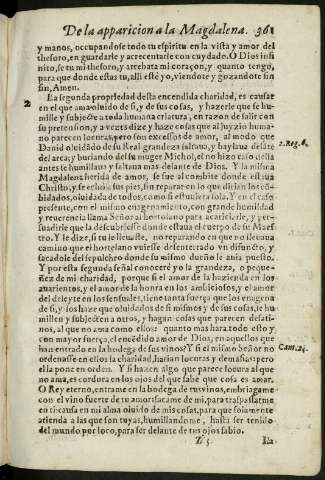 De la apparicion a la Magdalena. 361
y manos, occupandose todo tu espiritu en la vista y amor del
thesoro, en guardarle y acrecentarle con cuydado. O Dios infi
nito, se tu mi thesoro, y arrebata mi coraçon, y quanto tengo,
para que donde estas tu, alli esté yo, viendote y gozandote sin
fin, Amen.
2 La segunda propriedad desta encendida charidad, es causar
en el que ama olvido de si, y de sus cosas, y hazerle que se hu-
mille y subjecte a toda humana criatura, en razon de salir con
su pretension, y a vezes dize y haze cosas que al juyzio huma-
no parecen locuras, pero son excessos de amor, al modo que
David olvidado de su Real grandeza saltava, y baylava delãte 2. Reg. 6.
del arca; y burlando de su muger Michol, el no hizo caso della
antes se humillava y saltava mas delante de Dios. Y la misma
Magdalena herida de amor, se fue al combite donde estava
Christo, y se echó a sus pies, sin reparar en lo que dirian los cõ-
bidados, olvidada de todos, como si estuviera sola. Y en el caso
presente, con el mismo enagenamiento, con grande humildad
y reverencia llama Señor al hortolano para acariciarle, y per-
suadirle que la descubriesse donde estava el cuerpo de su Maes-
tro. Y le dize, si tu le llevaste, no reparando en que no llevava
camino que el hortelano viniesse de enterrado un difuncto, y
sacadole del sepulchro donde su mismo dueño le avia puesto.
Y por esta segunda señal conoceré yo la grandeza, o peque-
ñez de mi charidad, porque si el amor de la hazienda en los
avarientos, y el amor de la honra en los ambiciosos, y el amor
del deleyte en los sensuales, tiene tanta fuerça que los enagena
de si, y los haze que olvidados de si mismos y de sus cosas, se hu
millen y subjecten a otros, y hagan cosas que parecen desati-
nos, al que no ama como ellos: quanto mas hara todo esto y
con mayor fuerça, el encẽdido amor de Dios, en aquellos que
han entrado en la bodega de sus vinos? Y si el mismo Señor no Cant. 24.
ordenasse en ellos la charidad, harian locuras y demasias: pero
el la pone en orden. Y si hazen algo que parece locura al que
no ama, es cordura en los ojos del que sabe que cosa es amar.
O Rey eterno, entrame en la bodega de tus vinos, embriagame
con el vino fuerte de tu amor, sacame de mi, para traspassarme
en ti: causa en mi alma olvido de mis cosas, para que solamente
atienda a las que son tuyas, humillandome, hasta ser tenido
del mundo por loco, para ser delante de tus ojos sabio.
Z 5. La